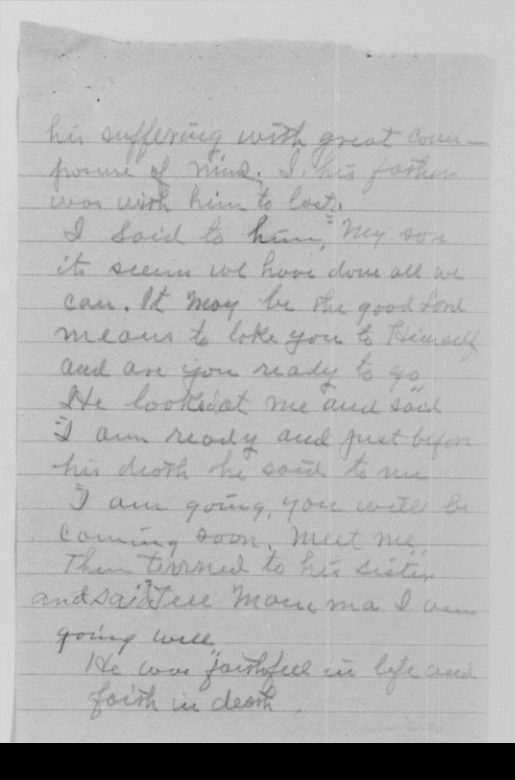 his suffering with great com-
posure of mind. I, his father
was with him to last.
I said to him, "My son
its seems we have done all we
can. It may be the good Lord
means to take you to Himself
and are you ready to go
He looked at me and said
"I am ready and just before
his death he said to me
"I am going, you will be
coming soon, meet me"
Then turned to his sister
and said "Tell Mama I am
going well
He was faithful in life and
faith in death.